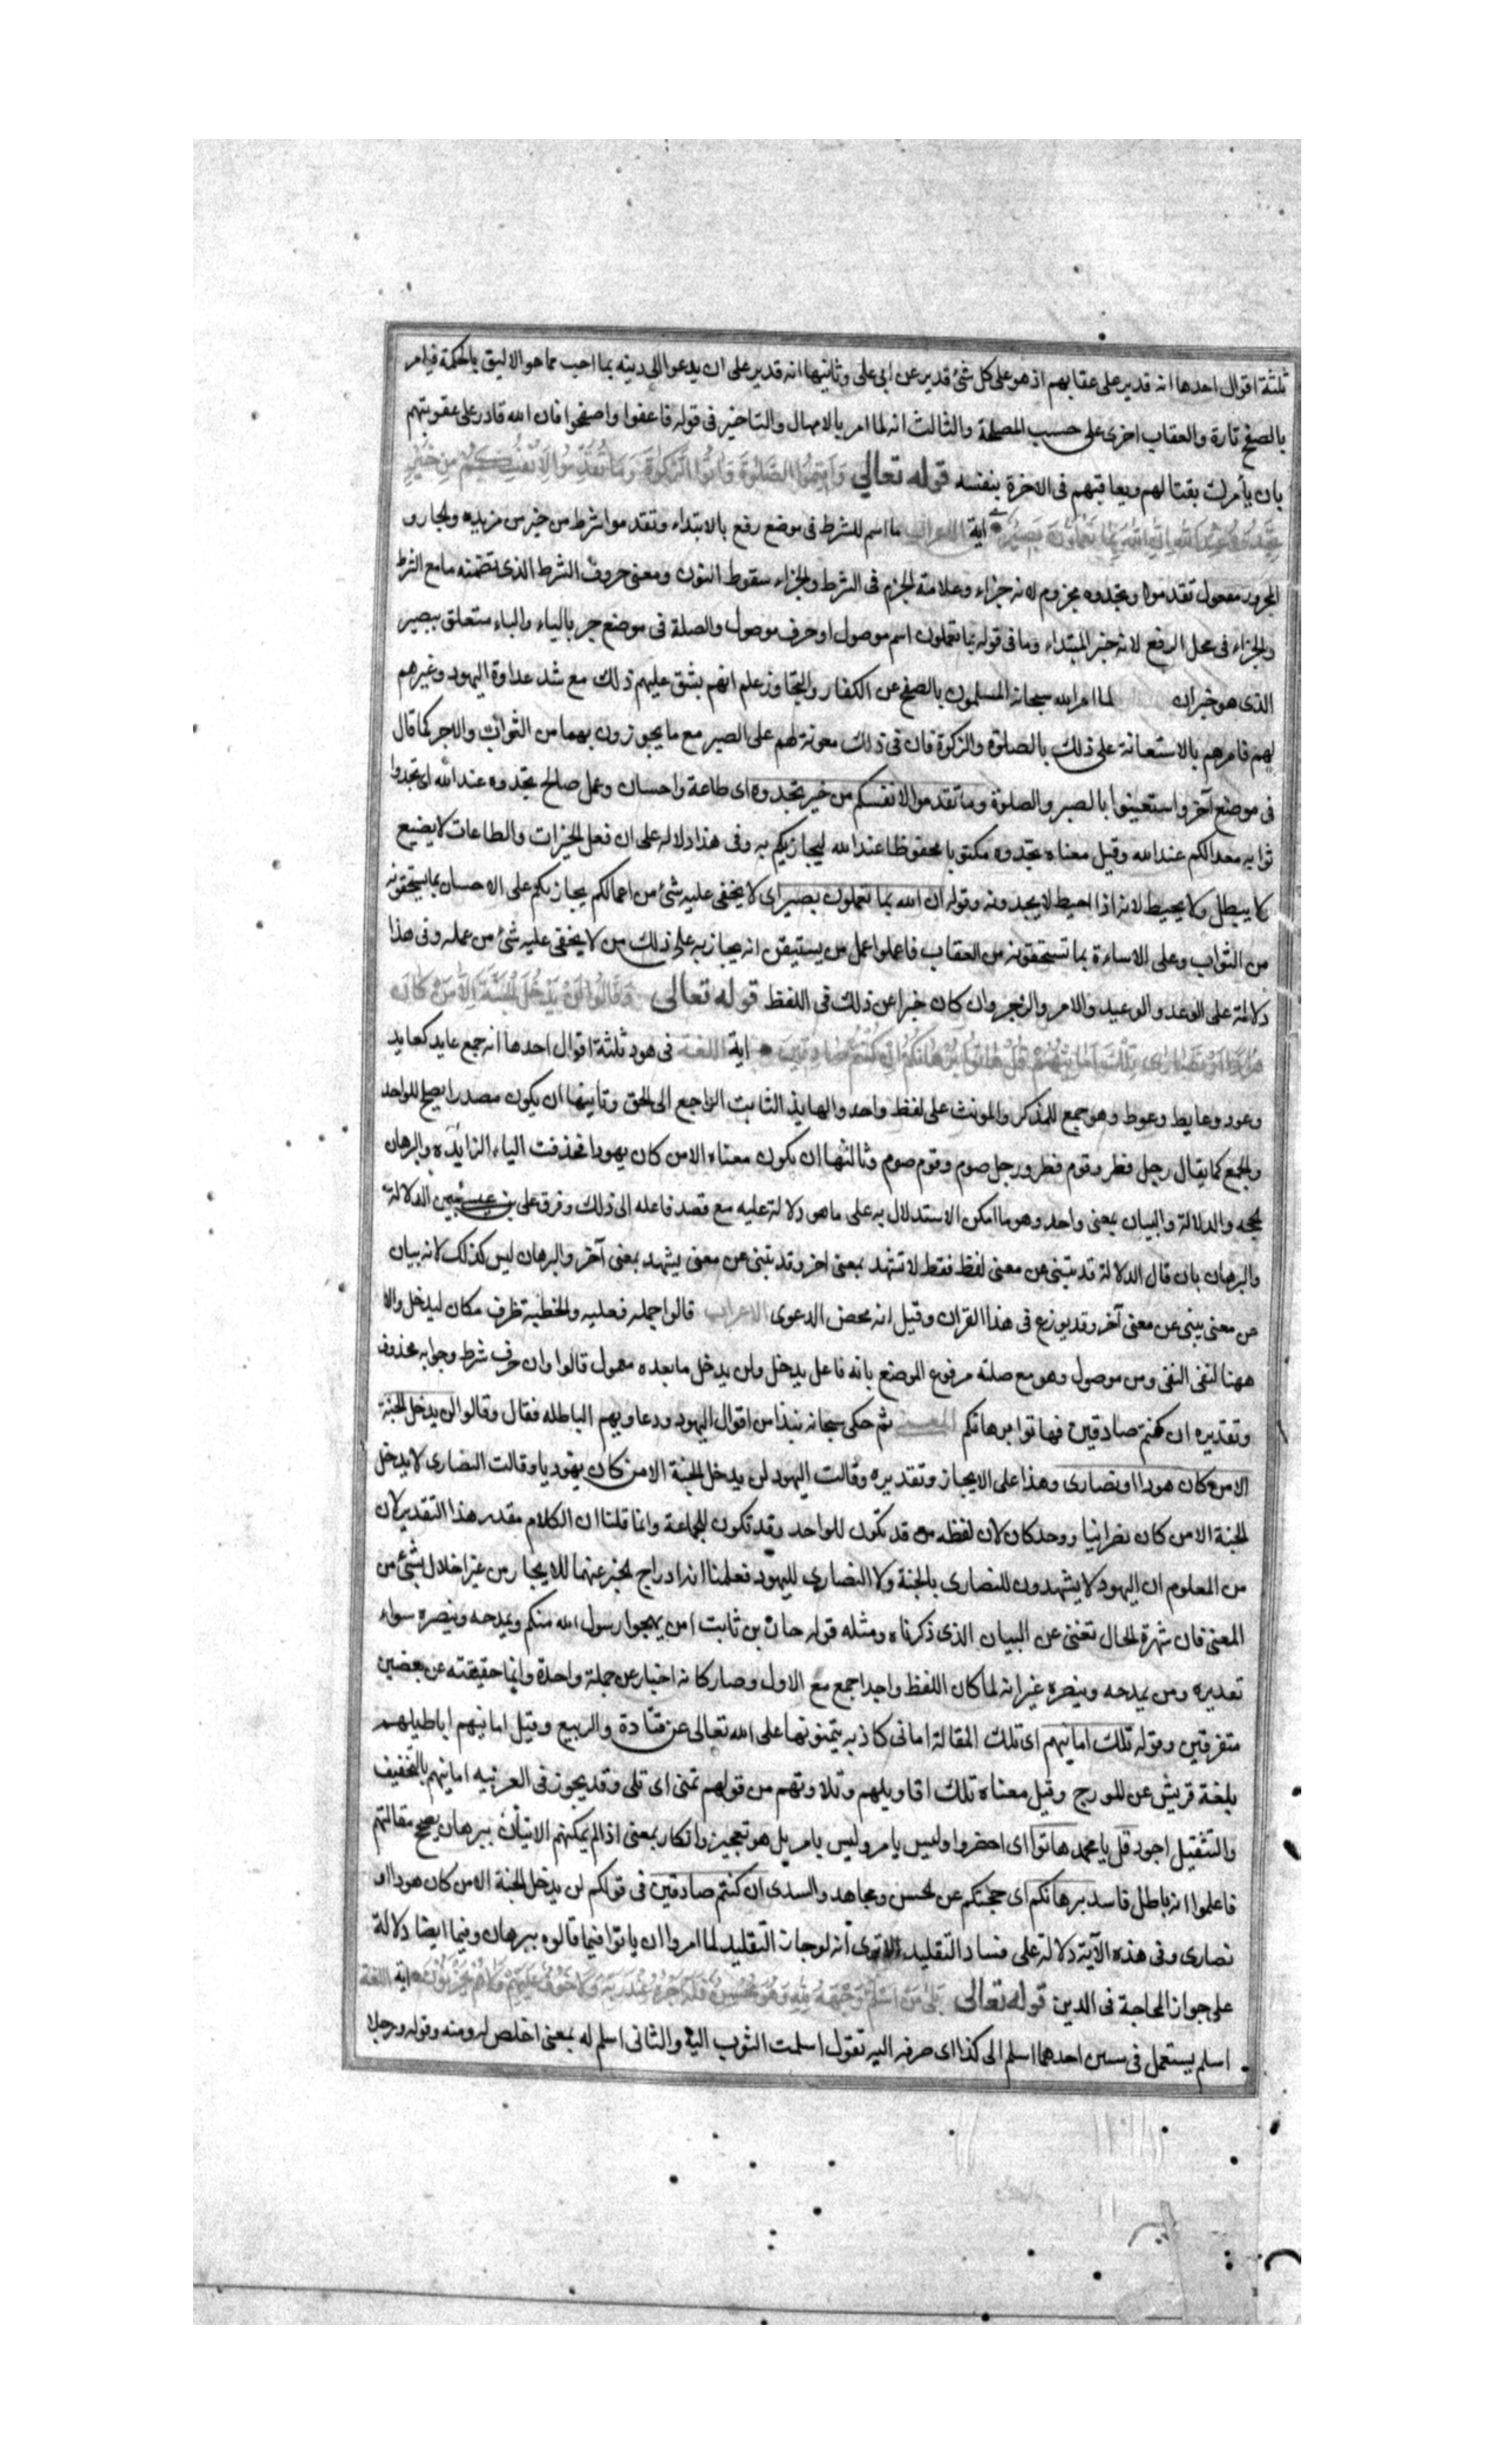 ثلثة اقوال احدها انه قدير على عقابهم اذ هو على كل شئ قدير عن ابى على وثانيها انه قدير على ان يدعوا الى دينه بما احب مما هو الاليق بالحكمة فيامر
بالصفح تارة والعقاب اخرى على حسب المصلحة والثالث انه لما امر بالامهال والتاخير فى قوله فاعفوا واصفحوا فان الله قادر على عقوبتهم
بان يأمرك بقتالهم ويعاقبهم فى الاخرة بنفسه قوله تعالى وَاَقِيمُوا الصَّلوٰةَ وَاٰتُوا الزَّكوٰةَ وَمَا تُقَدِّمُوا لِاَنْفُسِكُمْ مِنْ خَيْرٍ
تَجِدُوهُ عِنْدَ اللهِ اِنَّ اللهَ بِمَا تَعْمَلُونَ بَصِيرٌ اية الاعراب ما اسم للشرط فى موضع رفع بالابتداء وتقدموا شرط من خير من مزيده والجار و
المجرور مفعول تقدموا وتجدوه مجزوم لانه جزاء وعلامة الجزم فى الشرط والجزاء سقوط النون ومعنى حروف الشرط الذى تضمنه ما مع الشرط
والجزاء فى محل الرفع لانه خبر المبتداء وما فى قوله بما تعملون اسم موصول او حرف موصول والصلة فى موضع جر بالباء والباء متعلق ببصير
الذى هو خبر ان لما امر الله سبحانه المسلمون بالصفح عن الكفار والتجاوز علم انهم يشق عليهم ذلك مع شد عداوة اليهود وغيرهم
لهم فامرهم بالاستعانة على ذلك بالصلوة والزكوة فان فى ذلك معونة لهم على الصبر مع ما يحوزون بهما من الثواب والاجر كما قال
فى موضع آخر واستعينوا بالصبر والصلوة وما تقدموا لانفسكم من خير تجدوه اى طاعة واحسان وعمل صالح تجدوه عند الله اى تجدوا
ثوابه معدا لكم عند الله وقيل معناه تجدوه مكتوبا محفوظا عند الله ليجازيكم به وفى هذا دلاله على ان فعل الخيرات والطاعات لا يضيع
ولا يبطل ولا يحيط لانه اذا احيط لا يجدونه وقوله ان الله بما تعملون بصير اى لا يخفى عليه شئ من اعمالكم يجازيكم على الاحسان بما يستحقونه
من الثواب وعلى الاساءة بما تستحقونه من العقاب فاعملوا عمل من يستيقن انه يجازيه على ذلك من لا يخفى عليه شئ من عمله وفى هذا
دلالة على الوعد والوعيد والامر والزجر وان كان خبرا عن ذلك فى اللفظ قوله تعالى وَقَالُوا لَنْ يَدْخُلَ الْجَنَّةَ اِلَّا مَنْ كَانَ
هُودًا اَوْ نَصَارٰى تِلْكَ اَمَانِيُّهُمْ قُلْ هَاتُوا بُرْهَانَكُمْ اِنْ كُنْتُمْ صَادِقِينَ اية اللغة فى هود ثلثة اقوال احدها انه جمع عايد كعايد
وعود وعايط وعوط وهو جمع للمذكر والمونث على لفظ واحد والهايد الثابت الراجع الى الحق وثانيها ان يكون مصدرا يصلح للواحد
والجمع كما يقال رجل فطر وقوم فطر ورجل صوم وقوم صوم وثالثها ان يكون معناه الا من كان يهودا فحذفت الياء الزايدة والبرهان
لحجه والدلالة والبيان بمعنى واحد وهو ما امكن الاستدلال به على ما هو دلالة عليه مع قصد فاعله الى ذلك وفرق على بن عيسى بين الدلالة
والبرهان بان قال الدلالة قد تنبئ عن معنى لفظ فقط لا تشهد بمعنى اخر وقد تنبئ عن معنى يشهد بمعنى آخر والبرهان ليس كذلك لانه بيان
عن معنى ينبئ عن معنى آخر وقد يوزع فى هذا القران وقيل انه محض الدعوى الاعراب قالوا جمله فعليه والخطبة ظرف مكان ليدخل والا
ههنا لنفى النفى ومن موصول وهو مع صلته مرفوع الموضع بانه فاعل يدخل ولن يدخل ما بعده معمول قالوا وان حرف شرط وجوابه محذوف
وتقديره ان كنتم صادقين فهاتوا برهانكم المعنى ثم حكى سبحانه نبذا من اقوال اليهود ودعاويهم الباطله فقال وقالوا لن يدخل الجنة
الا من كان هودا او نصارى وهذا على الايجاز وتقديره وقالت اليهود لن يدخل الجنة الا من كان يهوديا وقالت النصارى لا يدخل
لجنة الا من كان نصرانيا ووحد كان لان لفظه من قد تكون للواحد وقد تكون للجماعة وانما قلنا ان الكلام مقدر هذا التقدير لان
من المعلوم ان اليهود لا يشهدون للنصارى بالجنة ولا النصارى لليهود فعلمنا انه ادراج لخبر عنهما للايجاز من غير اخلال بشئ من
المعنى فان شهرة الحال تغنى عن البيان الذى ذكرناه ومثله قوله حان بن ثابت امن يهجوا رسول الله منكم ويمدحه وينصره سواء
تقديره ومن يمدحه وينصره غير انه لما كان اللفظ واحدا جمع مع الاول وصار كانه اخبار عن جملة واحدة وانما حقيقته عن بعضين
متفرقين وقوله تلك امانيهم اى تلك المقالة امانى كاذبه يتمنونها على الله تعالى عن قتادة والربيع وقيل امانيهم اباطيلهم
بلغة قريش عن المورج وقيل معناه تلك اقاويلهم وتلاوتهم من قولهم تمنى اى تلى وقد يجوز فى العربيه امانيهم بالتخفيف
والتثقيل اجود قل يا محمد هاتوا اى احضروا وليس يامر وليس يامر بل هو تعجيز وانكار بمعنى اذ الم يمكنهم الاتيان ببرهان يصح مقالتهم
فاعلموا انه باطل فاسد برهانكم اى حجتكم عن لحسن ومجاهد والسدى ان كنتم صادقين فى قولكم لن يدخل الجنة الا من كان هودا او
نصارى وفى هذه الآية دلالة على فساد التقليد الا ترى انه لو جاز التقليد لما امروا ان ياتوا فيما قالوه ببرهان وفيها ايضا دلالة
على جواز المحاجة فى الدين قوله تعالى بَلٰى مَنْ اَسْلَمَ وَجْهَهُ لِلّٰهِ وَهُوَ مُحْسِنٌ فَلَهُ اَجْرُهُ عِنْدَ رَبِّهِ وَلَا خَوْفٌ عَلَيْهِمْ وَلَا هُمْ يَحْزَنُونَ اية اللغة
اسلم يستعمل فى احدهما اسلم الى كذا اى صرفه اليه تقول اسلمت الثوب اليه والثانى اسلم له بمعنى اخلص له ومنه وقوله ورجلا